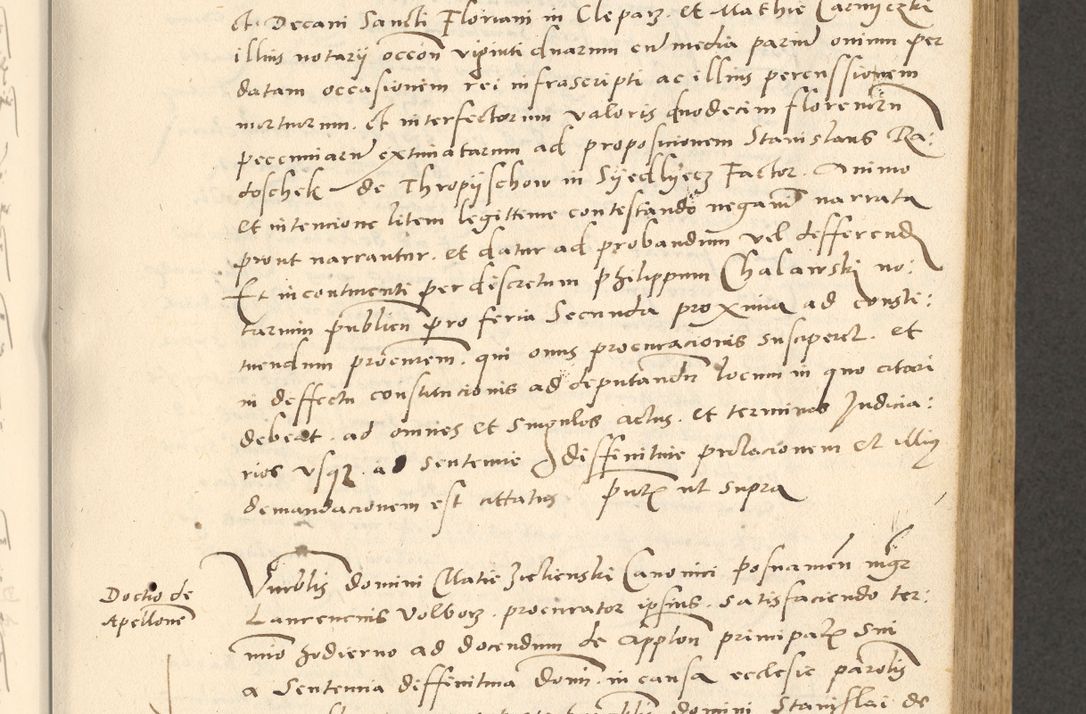 ct. Decani Sancti Floriani in Cleparz. et Mathie Carnyczki
illius notarij occōn viginti duarum cū media pariū onium per
datam occasionem rei infrascripti ac illius percussionem
mortuorum. Et interfectorum valoris quodecim florenorū
pecuniarū extimatarum ad propositionem Stanislaus Ra:
doschek de Thropijschow in Syedlyecz Factor. Animo
et intencione litem legittime contestando negavit narrata
prout narrantur. et datur ad probandum vel defferend
Et incontinenti per discretum philippum Chalawski no:
tarium publicū pro feria Secunda proxima ad consti:
tuendum procurem. qui onus procuracionis susciperet. et
in deffectu constitucionis ad deputandū locum in quo citari
debeat. ad omnes et singulos actus. et terminos Judicia:
rios usq₃ ad sentencie diffinitiue prolacionem et illius
demandacionem est cittatus putx ut supra
Doctio de
Apellonē
Vnrblis domini Matie Zielienski Canonici posnamēn mgr
Laurencius Volborz. procurator ipsius. satisfaciendo ter:
mīo hodierno ad docendum de applon principalx sui
a sentencia diffinitiua Domi. in causa ecclesie parolis
domini Stanislai de